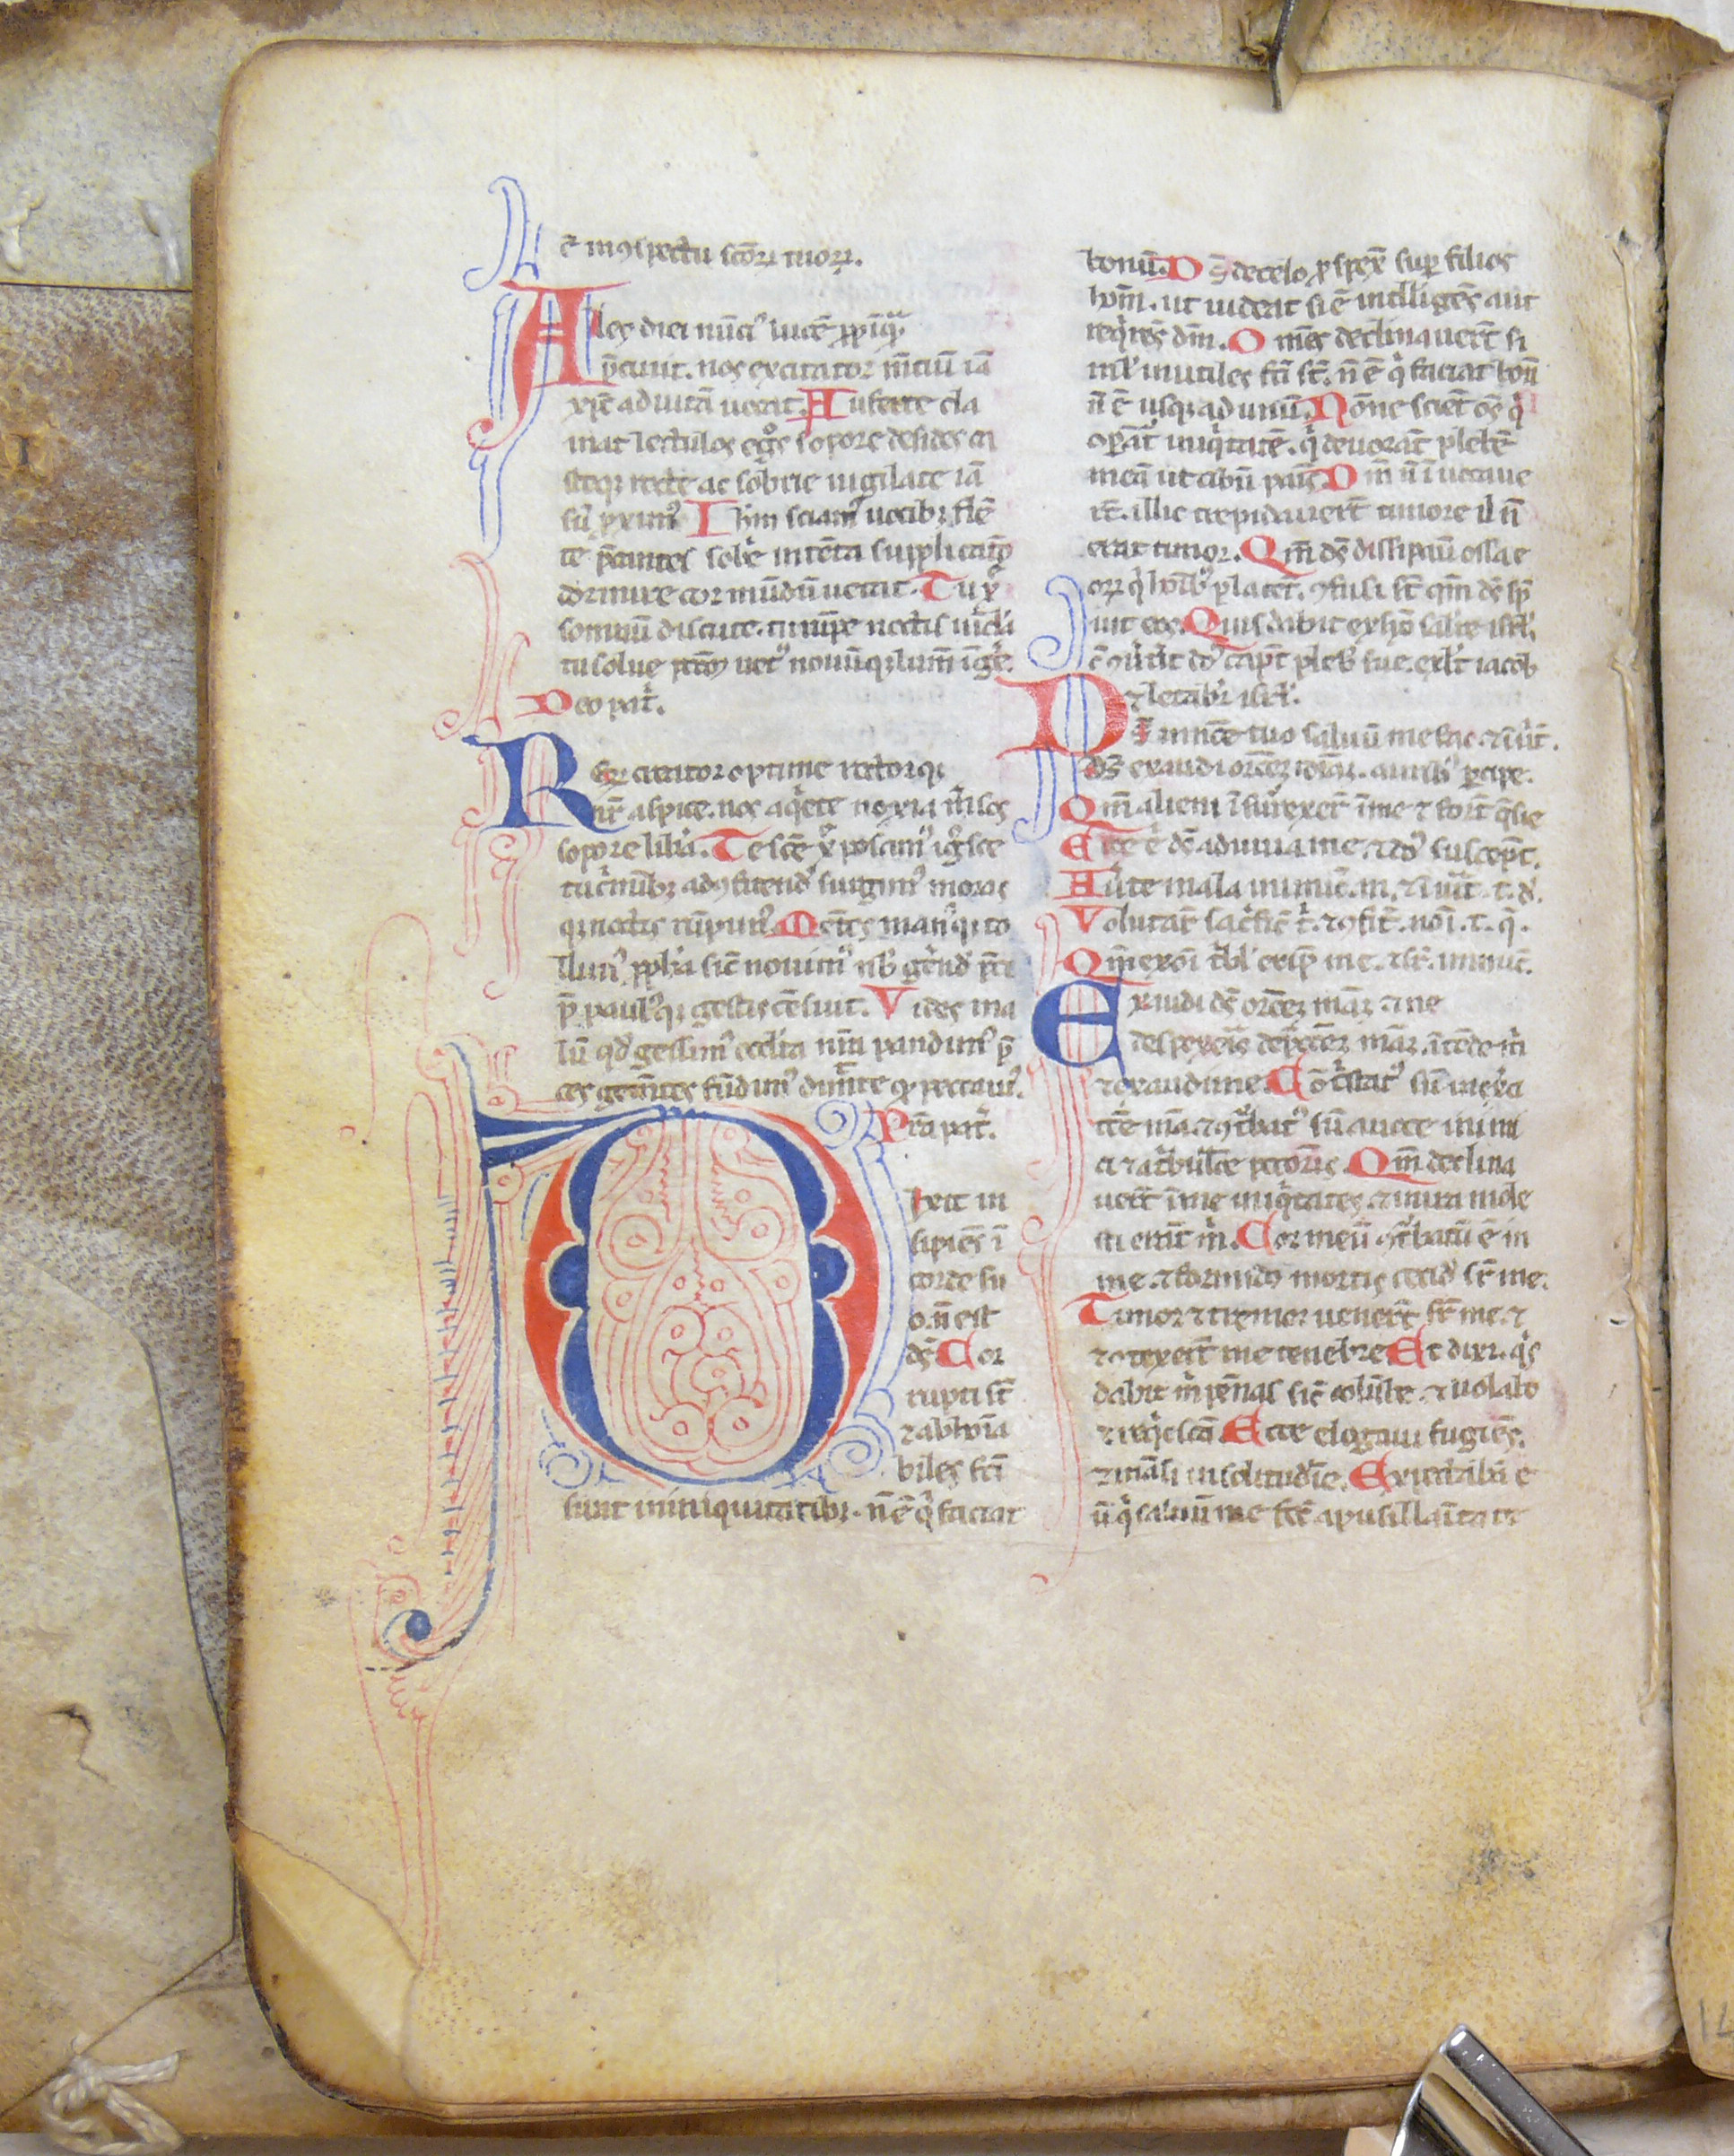 ē in ꝯspectu scōꝝ tuoꝝ.
Ales diei nūciꝰ lucē ꝓpīqͣ
p̄cinit. nos excitator mēciū iā
xp̄c ad uitā uocat. Auferte cla
mat lectulos egͦs sopore desides ca
steqꝫ recte ac sobrie uigilate iā
sū ꝓximꝰ Ihm sciamꝰ uocibꝫ flē
te p̄cantes sobͥe intēta supplicatio
dormire cor mūdū uetat. Tu xͤ
somnū discute. tu rūpe noctis uīcla
tu solue pctm̄ uetꝰ nouūqꝫ lum̄ īgͤe.
Deo patͥ.
Reꝝ creator optime rectorqꝫ
nr̄ aspice. nos a qͥete noxia m̄sos
sopore libͣa. Te scē xͤ poscimꝰ igͦsce
tu cͥminibꝫ ad ꝯfitendꝰ surgimꝰ moras
qꝫ noctis rūpimꝰ. Mētes manꝰqꝫ to
llimꝰ ꝓph̄a sic̄ nouimꝰ nb̄ gͤend p̄ci
p̄ paulꝰqꝫ gestis cēsuit. Vides ma
lū qd̄ gessimꝰ occlta nr̄a pandimꝰ p̄
ces gemētes fūdimꝰ dimite qͦ peccauiꝰ.
Pr̄a patͥ.
Dixit in
sipiēs ī
corde su
o. n̄ est
ds̄ Cor
rupti st̄
⁊ abhoīa
biles fc̄i
sunt in iniquitatibꝫ. n̄ ē qͥ faciat
bonū. Ds̄ de celo ꝓspex̄ suꝑ filios
hoīm. ut uideat si ē intelligēs aut
reqͥrēs dm̄. Omēs declinauer̄t si
ml̓ inutiles fc̄i st̄. n̄ ē qͥ faciat bonū
n̄ ē usqꝫ ad unū. Nōne sciēt oēs qͥ
oꝑāt iniqͥtatē. qͥ deuorāt plebē
meā ut cibū panis Dm̄ n̄ īuocaue
rt̄. illic trepidauer̄t timore ꝉ n̄
erat timor. Qm̄ ds̄ dissipauit ossa e
oꝝ qͥ hoībꝰ placēt. ꝯfusi st̄ qm̄ ds̄ sp̄
uit eos. Quis dabit ex syō salͬe isrl̓.
cū ꝯutͥit ds̄ capt̄ pleb̓ sue. exlt̄ iacob
⁊ letabiͬ isrl̓.
Ds̄ in noīe tuo saluū me fac. ⁊ ī uͥt.
Ds̄ exaudi orōeꝫ meā. aurib̓ ꝑcipe.
Qm̄ alieni īsurexer̄t ī me ⁊ fort̄ qͥsie
Ecce ē ds̄ adiuua me. ⁊ ds̄ suscept̄.
Auͥte mala inimic̄. m̄. ⁊ ī uīt. t. d̓.
Volutar̄ sacͥfic̄ t̄. ⁊ ꝯfit̄. noī. t. qͣ.
Qm̄ ex oī tͥbl̓ erip̄ me. ⁊ sr̄. inimic̄.
Exaudi ds̄ orōeꝫ māꝫ ⁊ ne
despexeis dep̄cōeꝫ māꝫ. ītēde m̄
⁊ exaudi me. Cōtͥstatꝰ sū ī exͬci
tōe mā. ⁊ ꝯtͬbatꝰ sū a uoce inimi
ci ⁊ a tͥbulōe pccōris. Qm̄ declina
uert̄ ī me iniqͥtates. ⁊ in ira mole
sti erāt m̄. Cor meū ꝯtͬbatū ē in
me. ⁊ formido mortis cecid̓ sr̄ me.
Timor ⁊ tremor uenert̄ sr̄ me. ⁊
ꝯtexert̄ me tenebre Et dixi. qͥs
dabit m̄ pēnas sic̄ colūbe. ⁊ uolabo
⁊ reqͥescā. Ecce elogaui fugiēs.
⁊ māsi in solitudīe. Expectabā e
ū qͥ saluū me fec̄ a pusillaīta te